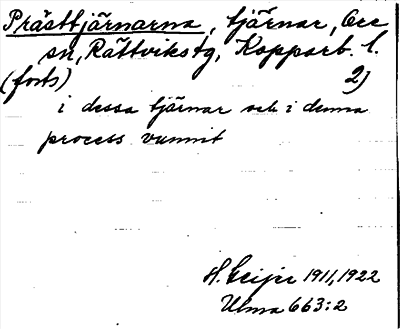 Prästtjärnarna, tjärnar, Ore
sn, Rättvikstg, Kopparb. l.
(forts) 2)
i dessa tjärnar och i denna
process vunnit
H. Geijer 1911, 1922
Ulma 663:2